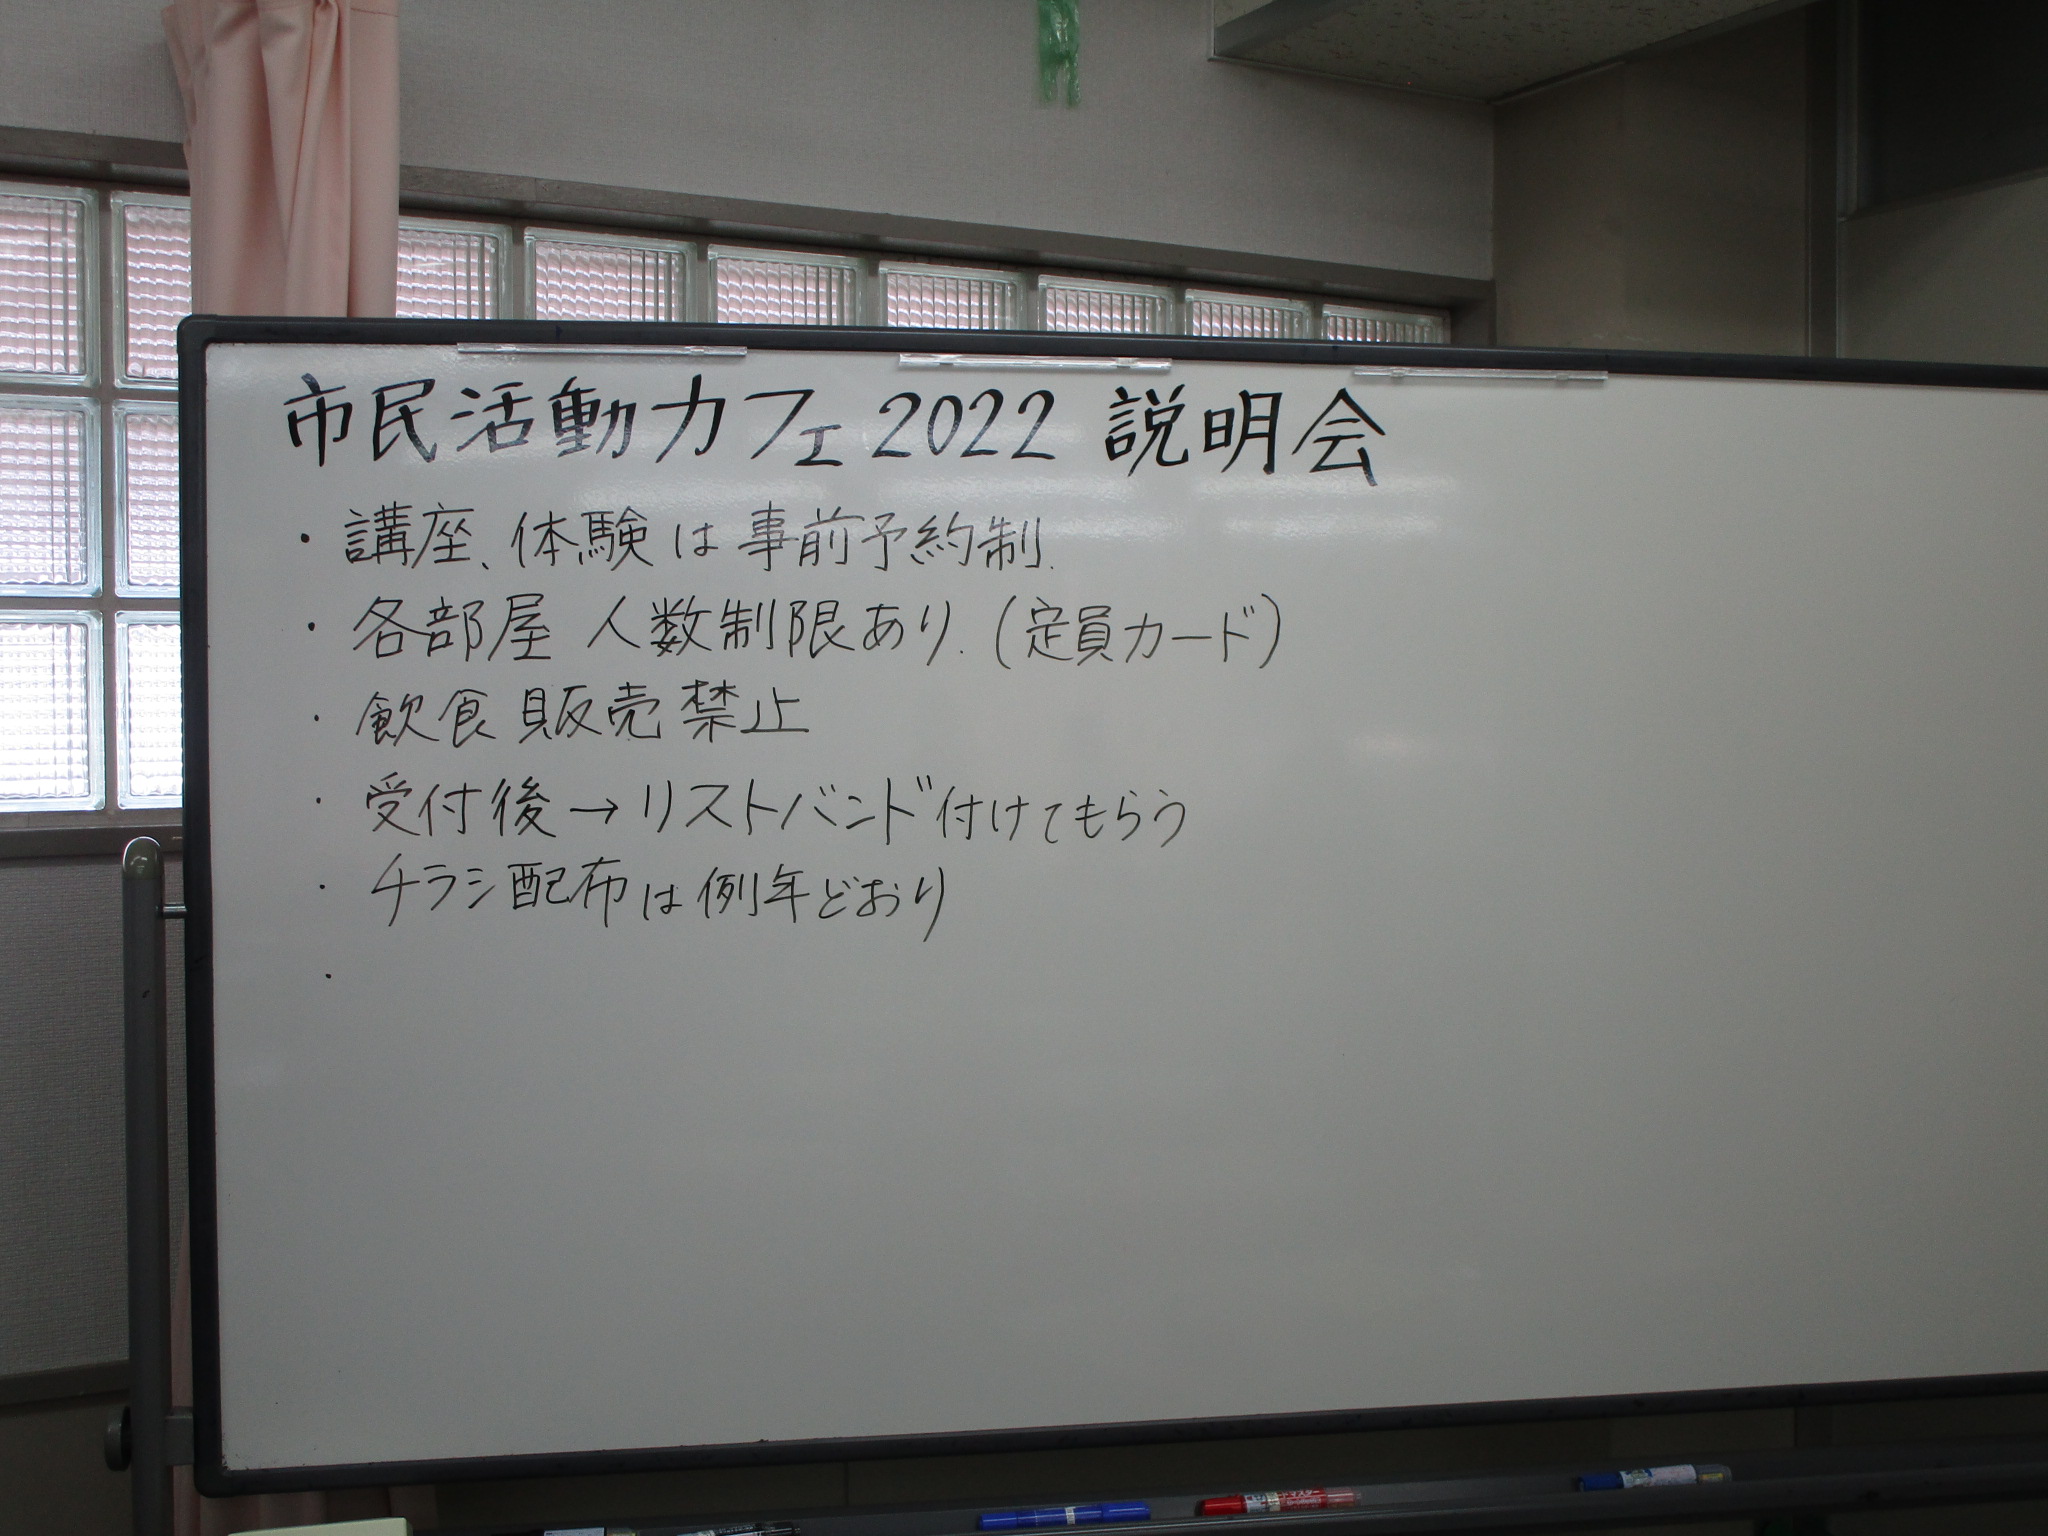 市民活動カフェ 2022 説明会
・講座、体験は事前予約制.
・各部屋 人数制限あり.(定員カード)
・飲食販売禁止
・受付後→リストバンド付けてもらう
・チラシ配布は例年どおり
・